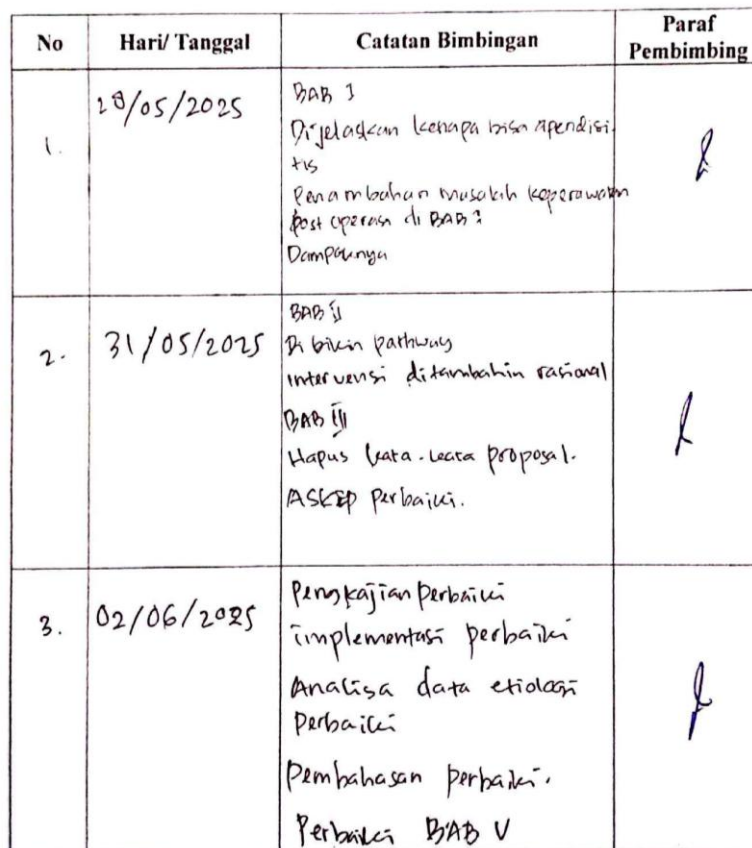 No Hari/ Tanggal Catatan Bimbingan Paraf Pembimbing
1. 28/05/2025 BAB I
Dijelaskan kenapa bisa apendisi-
tis
Penambahan masalah keperawatan
post operasi di BAB I
Dampaknya
2. 31/05/2025 BAB II
Di bikin pathway
intervensi ditambahin rasional
BAB III
Hapus kata-kata proposal.
ASKEP perbaiki.
3. 02/06/2025 Pengkajian perbaiki
implementasi perbaiki
Analisa data etiologi
Perbaiki
Pembahasan perbaiki.
Perbaiki BAB V